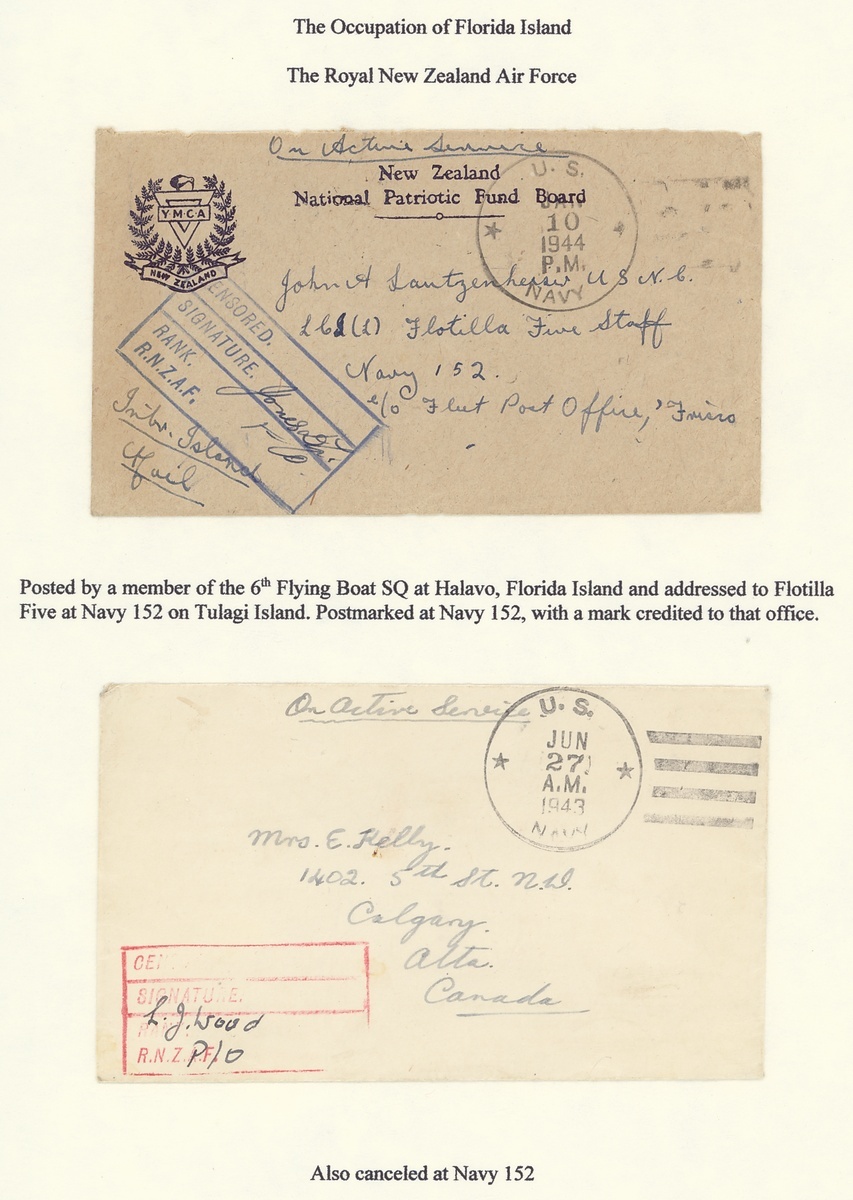 The Occupation of Florida Island
The Royal New Zealand Air Force
On Active Service
New Zealand
National Patriotic Fund Board
YMCA
NEW ZEALAND
U. S.
JAN
10
1944
P.M.
NAVY
John A Lautzenheiser U S N. C.
Flotilla Five Staff
Navy 152.
c/o Fleet Post Office, 'Frisco
CENSORED.
SIGNATURE.
RANK.
R.N.Z.A.F.
Inter-Island
Mail
Posted by a member of the 6th Flying Boat SQ at Halavo, Florida Island and addressed to Flotilla
Five at Navy 152 on Tulagi Island. Postmarked at Navy 152, with a mark credited to that office.
On Active Service
U. S.
JUN
27
A.M.
1943
NAVY
Mrs. E. Kelly.
1402. 5th St. N.W.
Calgary.
Alta.
Canada
SIGNATURE.
L. J. Wood
R.N.Z.A.F. P/O
Also canceled at Navy 152